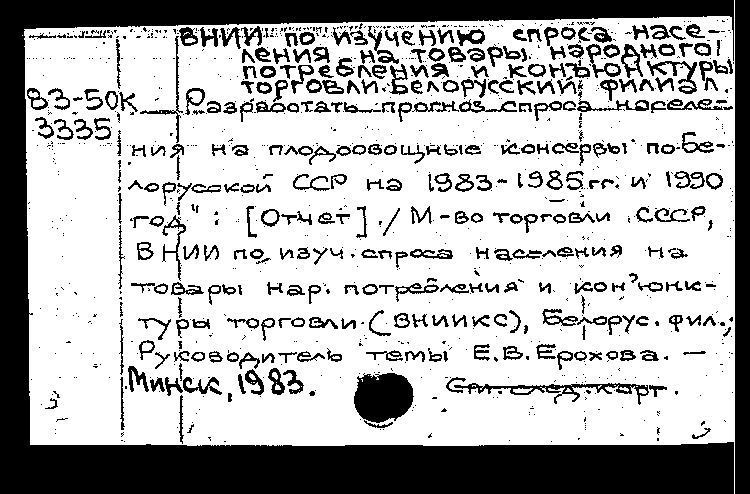 ВНИИ по изучению спроса насе-
ления на товары народного
потребления и конъюнктуры
торговли. Белорусский филиал.
83-50К Разработать прогноз спроса населе-
3335
ния на плодоовощные консервы по Бе-
лорусской ССР на 1983-1985 гг. и 1990
год" : [Отчет] ./ М-во торговли СССР,
ВНИИ по изуч. спроса населения на
товары нар. потребления и кон'юнк-
туры торговли (ВНИИКС), Белорус. фил.;
Руководитель темы Е.В. Ерохова. —
Минск, 1983. См. след. карт.